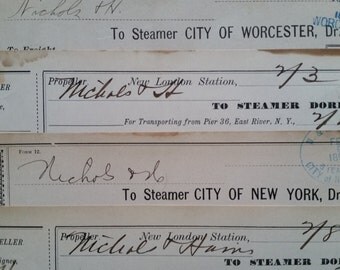 Nichols & H
To Steamer CITY OF WORCESTER, Dr.
To Freight
Propeller New London Station, 2/3
Nichols & H
TO STEAMER DOR
For Transporting from Pier 36, East River, N. Y.,
Form 12.
Nichols & H
To Steamer CITY OF NEW YORK, Dr
PELLER
Propeller New London Station, 2/8
Nichols & Harris
TO STEAMER DOR